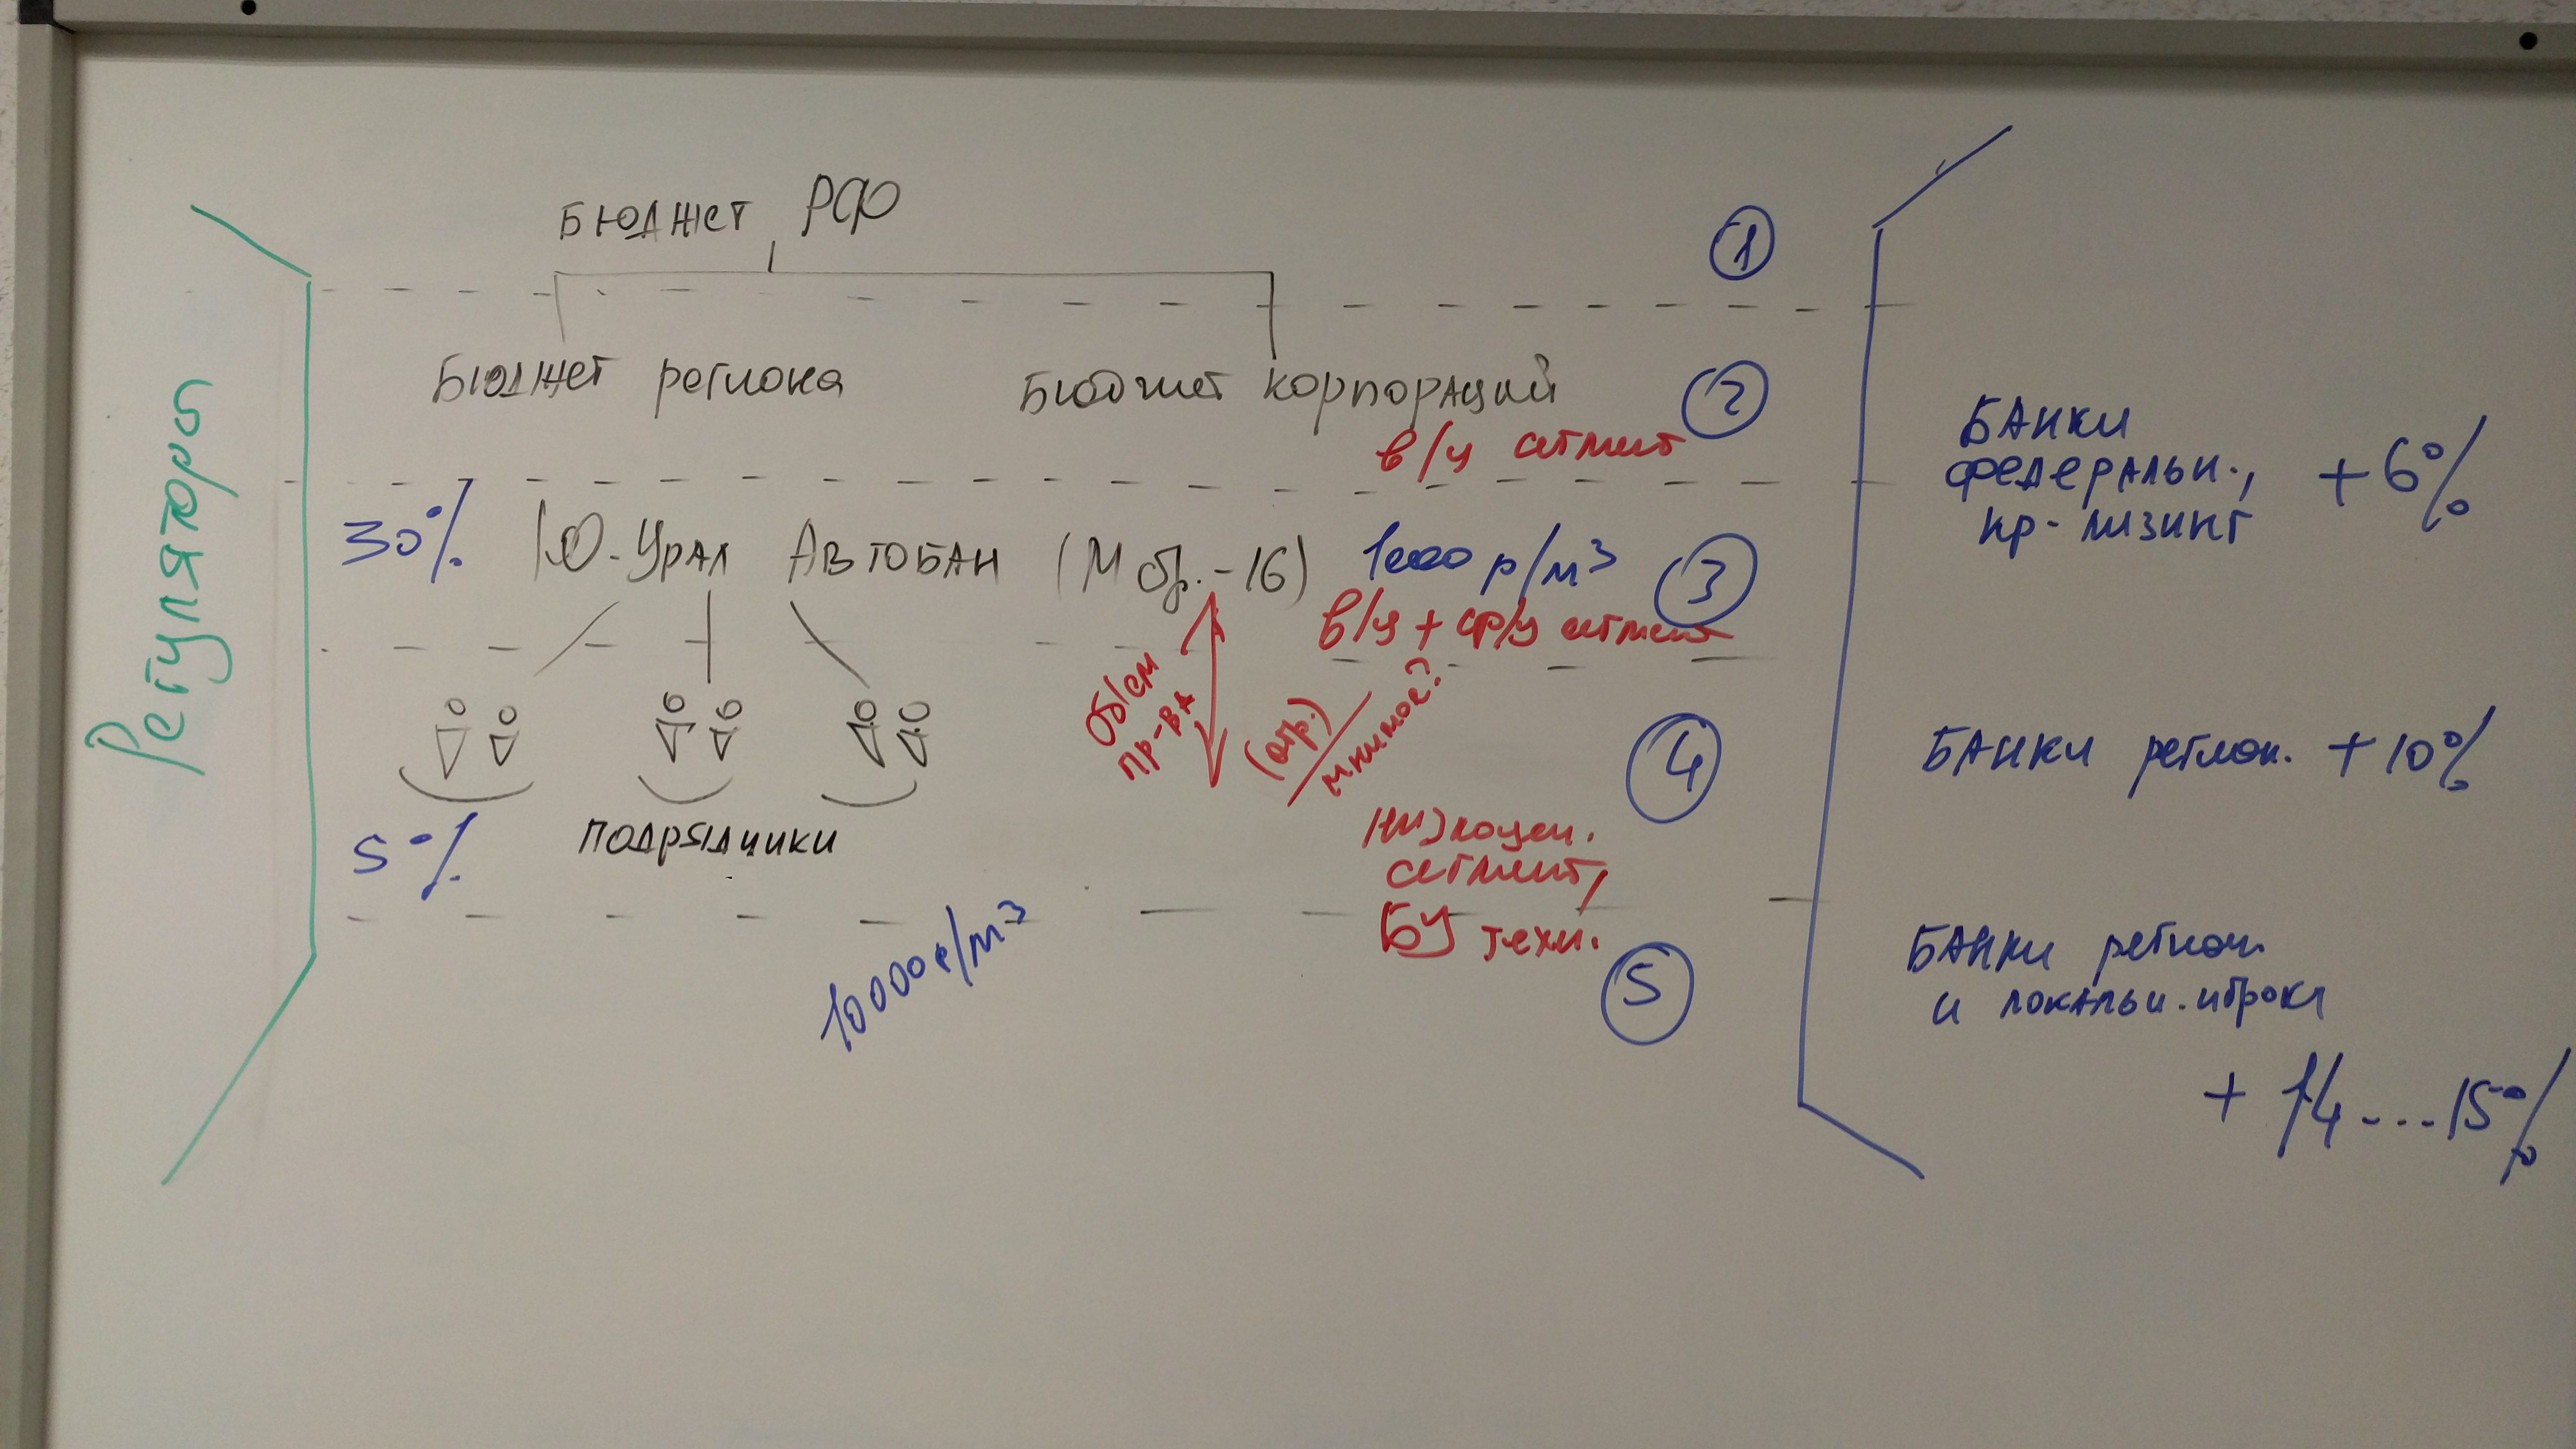 Регуляторы
Бюджет РФ
1
Бюджет региона
Бюджет корпораций
2
в/ц сегмент
30% Ю-Урал Автобан (М обр.-16) 1000 р/м³
3
в/ц + ср/ц сегмент
Объем
пр-ва
(огр.)
мнимое?
4
5% подрядчики
низкоцен.
сегмент,
БУ техн.
10000 р/м³
5
Банки
федеральн.,
кр-лизинг
+6%
Банки регион. +10%
Банки регион.
и локальн. игроки
+ 14...15%